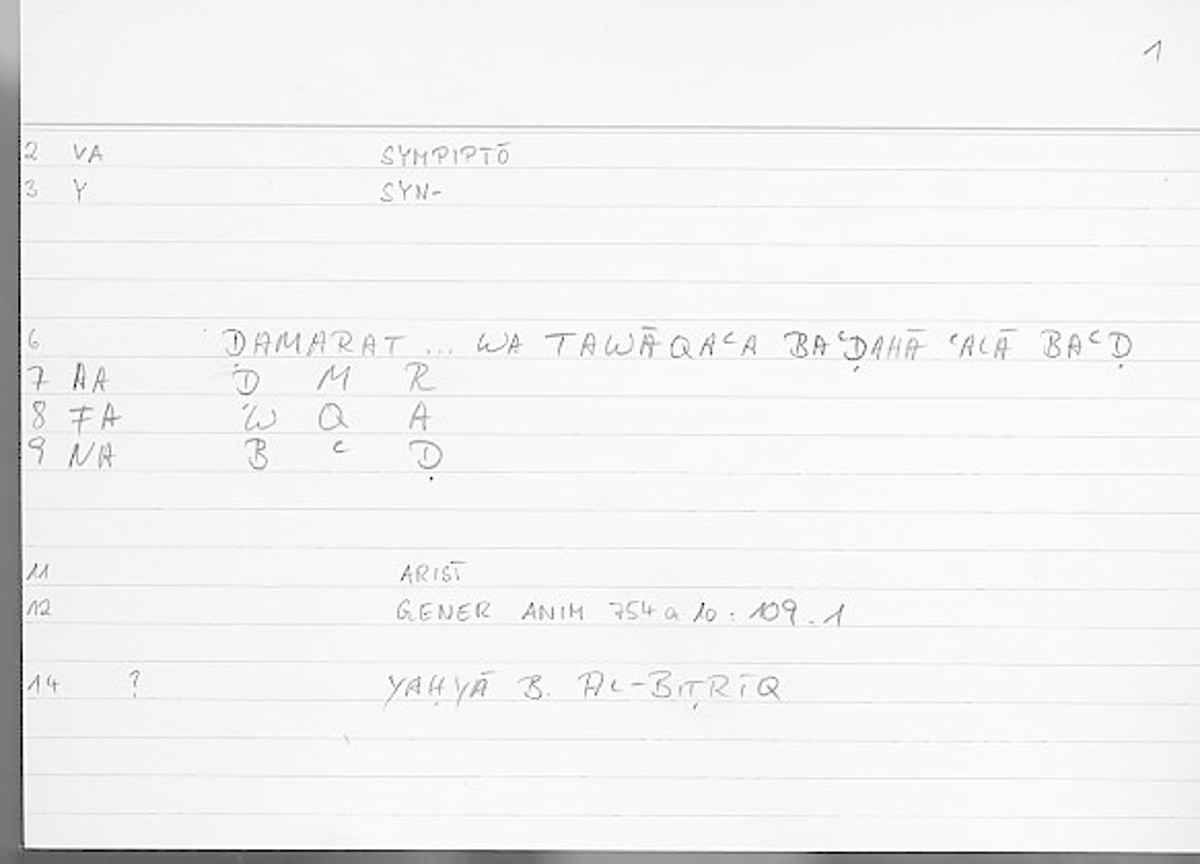 1
2 VA SYMPIPTŌ
3 Y SYN-
6 ḌAMARAT ... WA TAWĀQAᶜA BAᶜḌAHĀ ᶜALĀ BAᶜḌ
7 AA Ḍ M R
8 FA W Q A
9 NA B ᶜ Ḍ
11 ARIST
12 GENER ANIM 754 a 10 : 109.1
14 ? YAḤYĀ B. AL-BIṬRĪQ